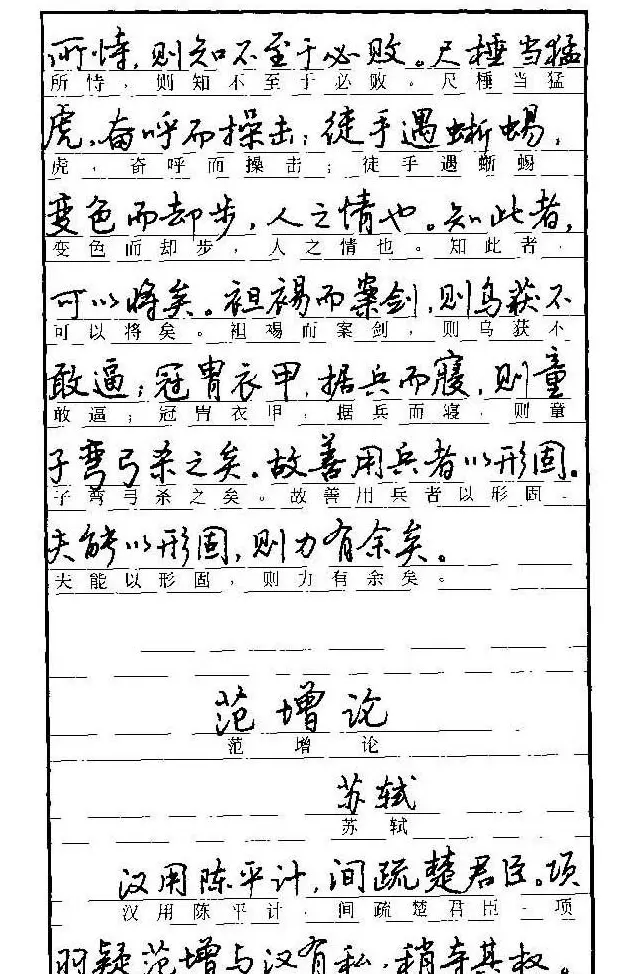 所恃，则知不至于必败。尺棰当猛
所恃，则知不至于必败。尺棰当猛
虎，奋呼而操击；徒手遇蜥蜴，
虎，奋呼而操击；徒手遇蜥蜴
变色而却步，人之情也。知此者，
变色而却步，人之情也。知此者，
可以将矣。袒裼而案剑，则乌获不
可以将矣。袒裼而案剑，则乌获不
敢逼；冠胄衣甲，据兵而寝，则童
敢逼；冠胄衣甲，据兵而寝，则童
子弯弓杀之矣。故善用兵者以形固。
子弯弓杀之矣。故善用兵者以形固。
夫能以形固，则力有余矣。
夫能以形固，则力有余矣。
范增论
范增论
苏轼
苏轼
汉用陈平计，间疏楚君臣。项
汉用陈平计，间疏楚君臣。项
羽疑范增与汉有私，稍夺其权。